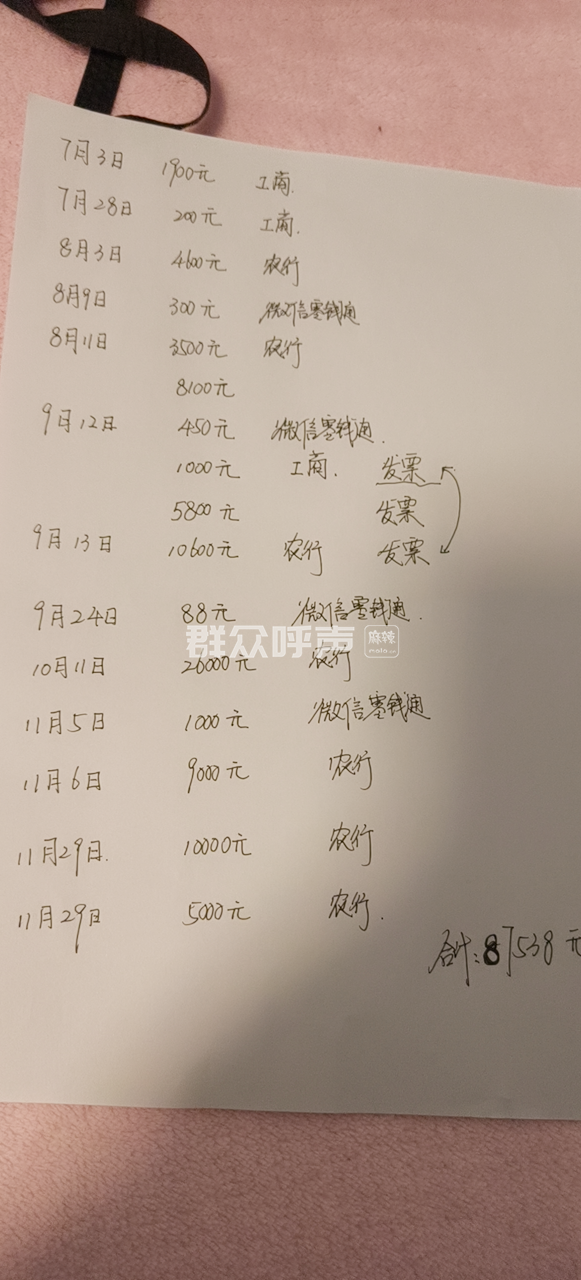 7月3日 1900元 工商.
7月28日 200元 工商.
8月3日 4600元 农行
8月9日 300元 微信零钱通
8月11日 3500元 农行
8100元
9月12日 450元 微信零钱通.
1000元 工商. 发票
5800元 发票
9月13日 10600元 农行 发票
9月24日 88元 微信零钱通.
群众呼声 麻辣 mala.cn
10月11日 26000元 农行
11月5日 1000元 微信零钱通
11月6日 9000元 农行
11月29日. 10000元 农行
11月29日 5000元 农行.
合计:87538元